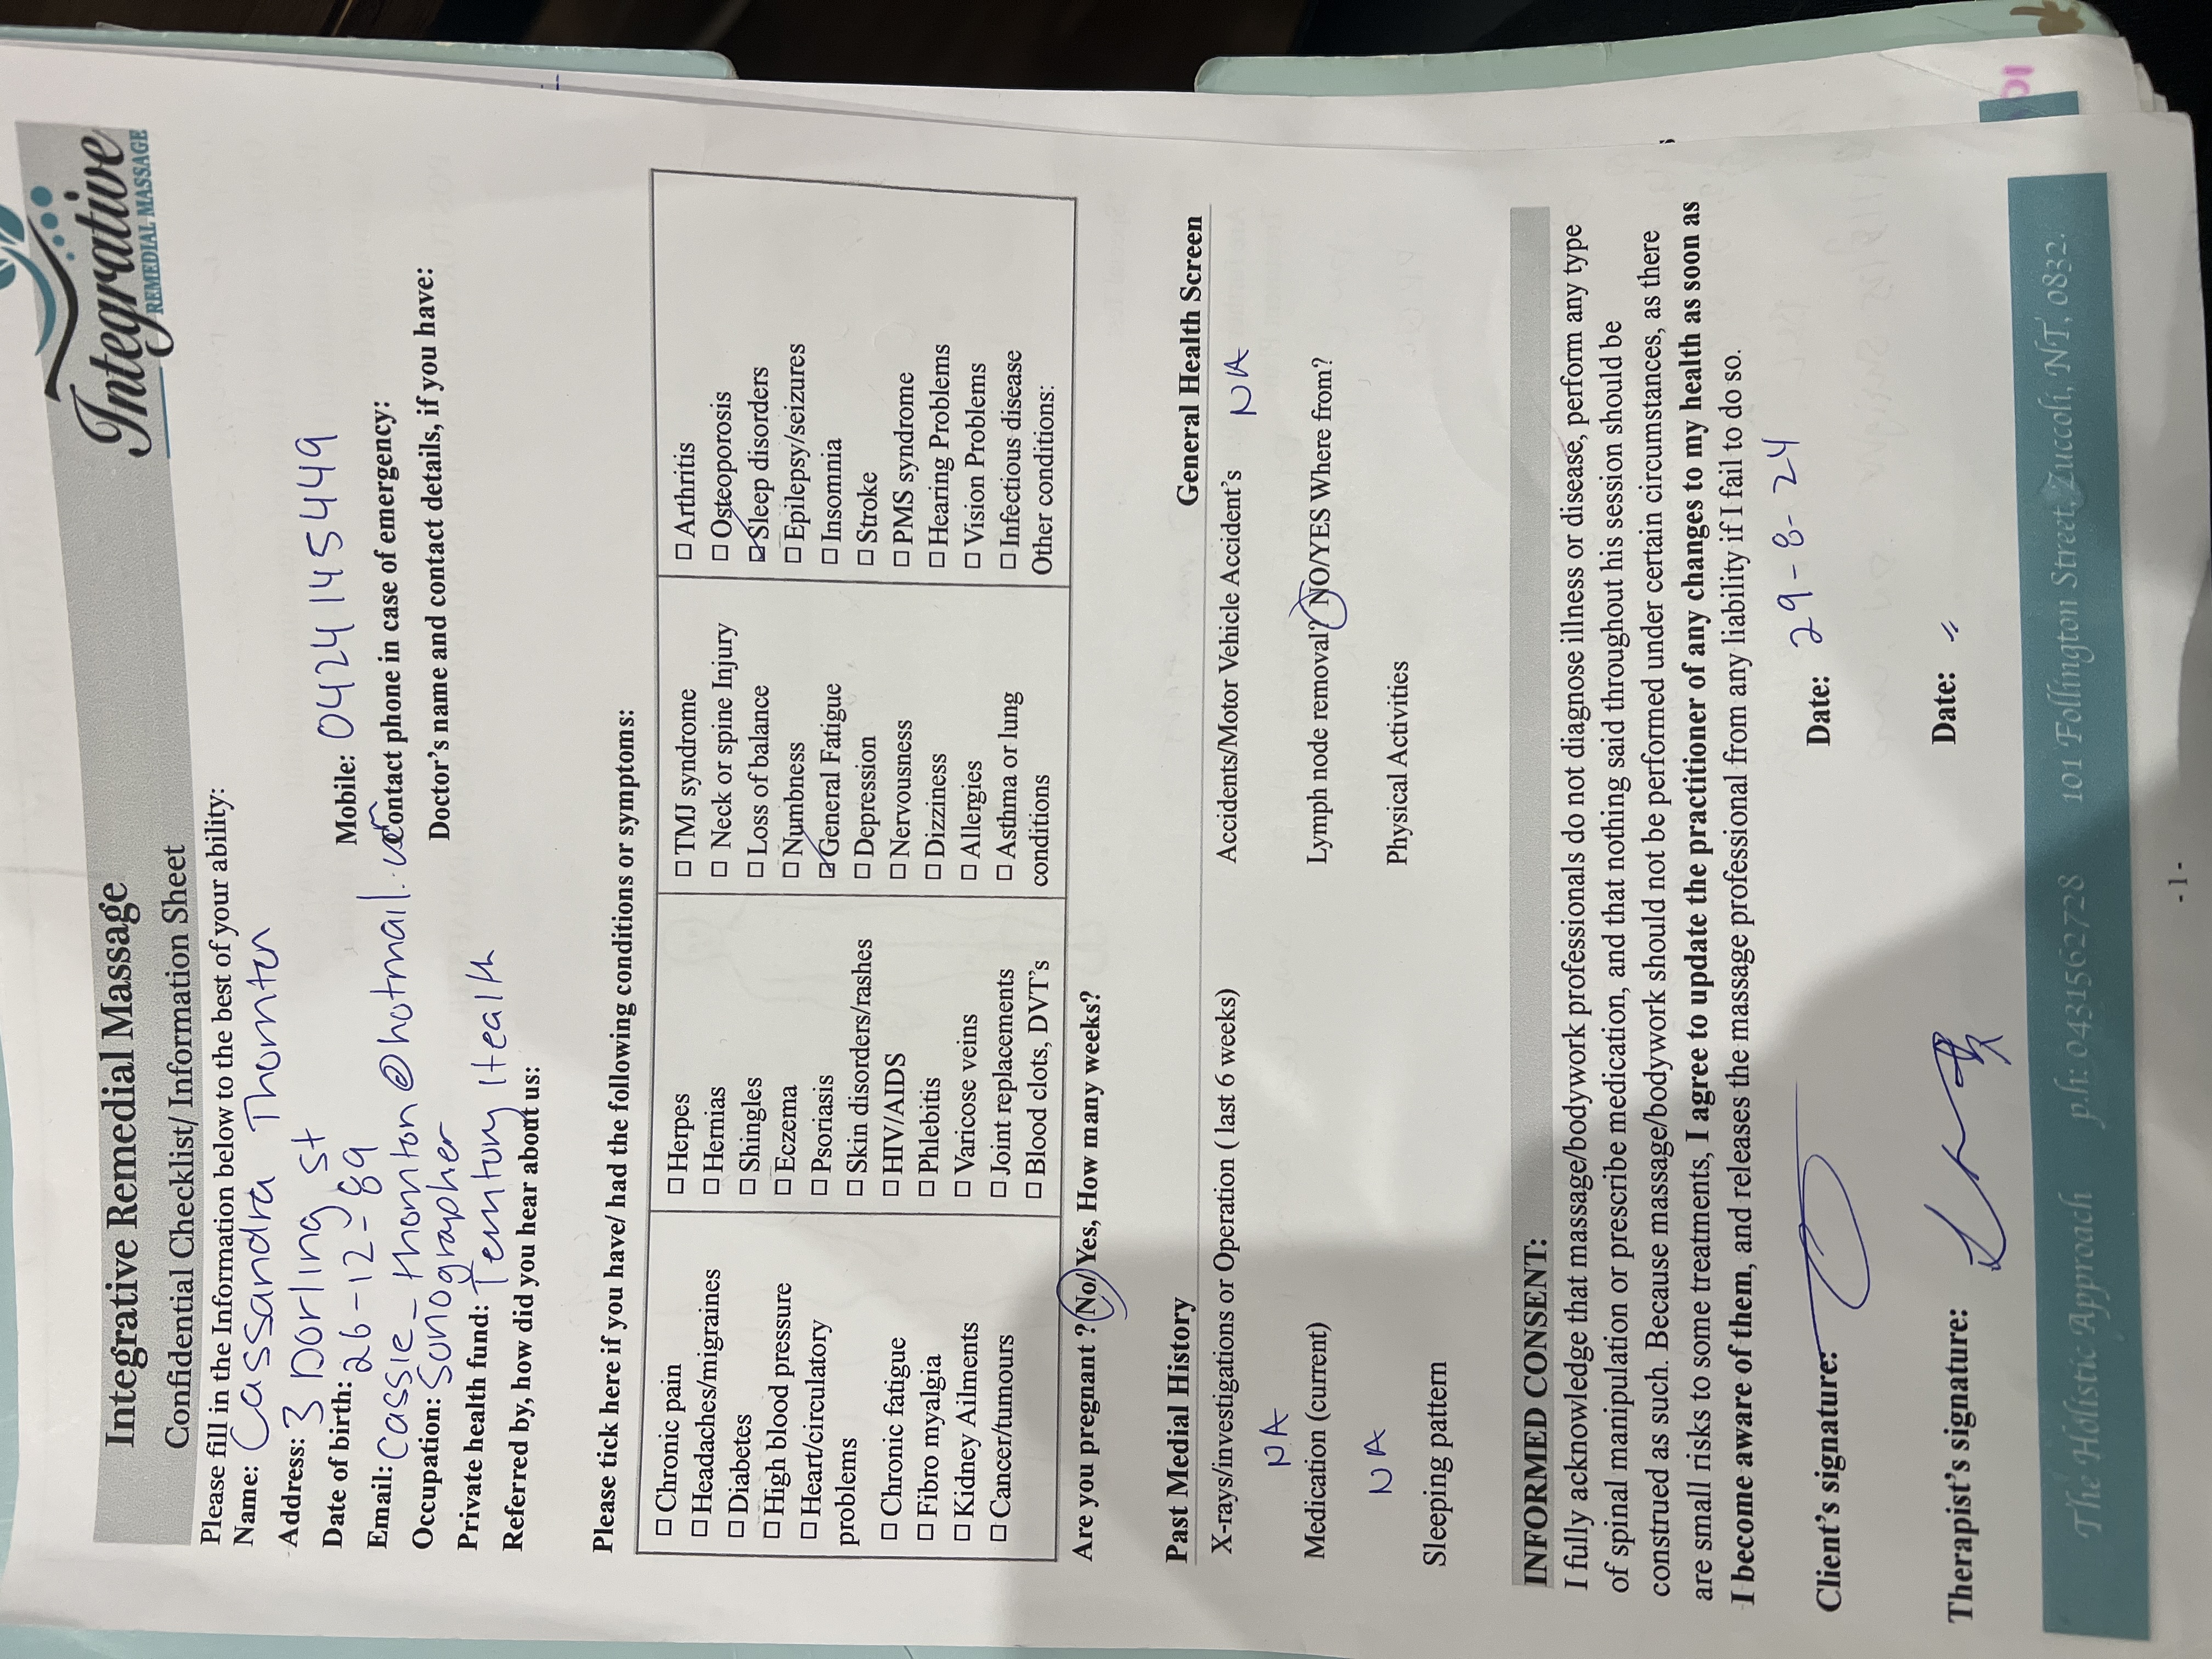 Integrative Remedial Massage
Confidential Checklist/ Information Sheet
Integrative
REMEDIAL MASSAGE
Please fill in the Information below to the best of your ability:
Name: Cassandra Thornton
Address: 3 Dorling st
Mobile: 0424 145449
Date of birth: 26-12-89
Contact phone in case of emergency:
Email: cassie_thornton@hotmail.com
Doctor's name and contact details, if you have:
Occupation: Sonographer
Private health fund: Territory Health
Referred by, how did you hear about us:
Please tick here if you have/ had the following conditions or symptoms:
☐ Chronic pain
☐ Headaches/migraines
☐ Diabetes
☐ High blood pressure
☐ Heart/circulatory
problems
☐ Chronic fatigue
☐ Fibro myalgia
☐ Kidney Ailments
☐ Cancer/tumours
☐ Herpes
☐ Hernias
☐ Shingles
☐ Eczema
☐ Psoriasis
☐ Skin disorders/rashes
☐ HIV/AIDS
☐ Phlebitis
☐ Varicose veins
☐ Joint replacements
☐ Blood clots, DVT's
☐ TMJ syndrome
☐ Neck or spine Injury
☐ Loss of balance
☐ Numbness
☑ General Fatigue
☐ Depression
☐ Nervousness
☐ Dizziness
☐ Allergies
☐ Asthma or lung
conditions
☐ Arthritis
☐ Osteoporosis
☑ Sleep disorders
☐ Epilepsy/seizures
☐ Insomnia
☐ Stroke
☐ PMS syndrome
☐ Hearing Problems
☐ Vision Problems
☐ Infectious disease
Other conditions:
Are you pregnant ? No/Yes, How many weeks?
Past Medial History
General Health Screen
X-rays/investigations or Operation ( last 6 weeks)
NA
Accidents/Motor Vehicle Accident's NA
Medication (current)
NA
Lymph node removal? NO/YES Where from?
Sleeping pattern
Physical Activities
INFORMED CONSENT:
I fully acknowledge that massage/bodywork professionals do not diagnose illness or disease, perform any type
of spinal manipulation or prescribe medication, and that nothing said throughout his session should be
construed as such. Because massage/bodywork should not be performed under certain circumstances, as there
are small risks to some treatments, I agree to update the practitioner of any changes to my health as soon as
I become aware of them, and releases the massage professional from any liability if I fail to do so.
Client's signature: Date: 29-8-24
Therapist's signature: Date: "
The Holistic Approach p.h: 0431562728 101 Follington Street, Zuccoli, NT, 0832.
- 1 -